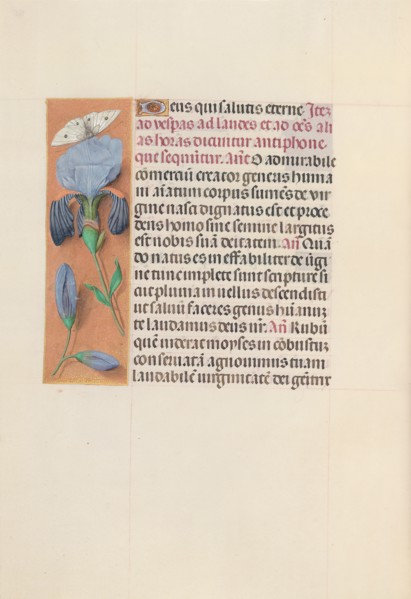 Deus qui salutis eterne. Ite𝔷
ad vesp̄as ad laudes et ad oēs ali
as horas dicūtur antiphone
que sequūtur. Añe O admirabile
cōmerciū creator generis huma
ni aīatum corpus sumēs de vir
gine nasci dignatus est et proce
dens homo sine semine largitus
est nobis suā deitatem. Añ Quā
do natus es ineffabiliter de v̄gi
ne tunc implete sunt scripture si
cut pluvia in vellus descendisti
ut saluū faceres genus humanū
te laudamus deus nr̄. Añ Rubū
quē viderat moyses in cōbustū
conservatā agnovimus tuam
laudabilē virginitatē dei genitrix